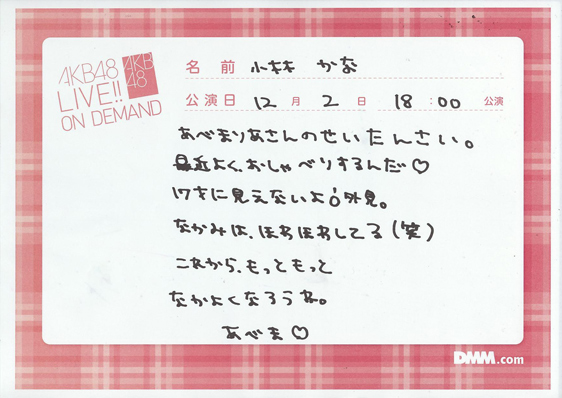 AKB48
LIVE!!
ON DEMAND
AKB
48
名前 小林 かな
公演日 12月2日 18:00 公演
あべまりあさんのせいたんさい。
最近よく、おしゃべりするんだ♡
17才に見えないよ!外見。
なかみは、ほわほわしてる(笑)
これから、もっともっと
なかよくなろうね。
あべま♡
DMM.com